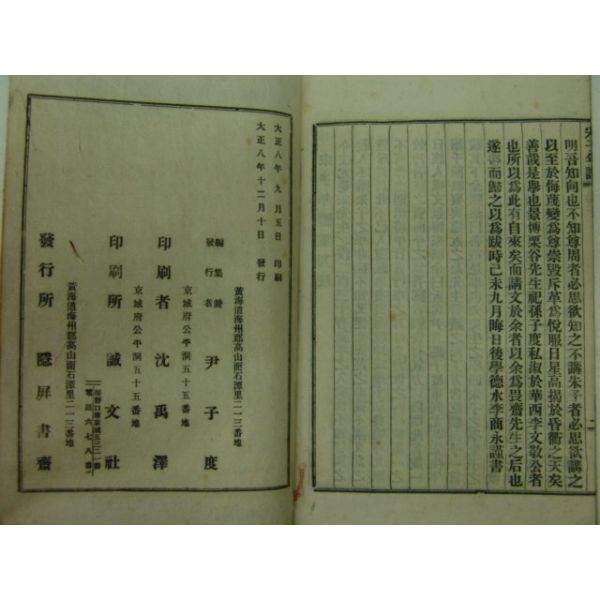 明吾知向也不知尊周者必思欲知之不講朱子者必思欲講之
以至於侮蔑變爲尊崇毁斥革爲悅服日星高揭於昏衢之天矣
善哉是擧也景慱栗谷先生祀孫子度私淑於華西李文敬公者
也所以爲此有自來矣而請文於余者以余爲畏齋先生之后也
遂爲而歸之以爲跋時己未九月晦日後學德水李商永謹書
大正八年九月五日 印刷
大正八年十二月十日 發行
黃海道海州郡高山面石潭里二一三番地
編集兼
發行者 尹子度
京城府公平洞五十五番地
印刷者 沈禹澤
京城府公平洞五十五番地
印刷所 誠文社
電話六七八番
黃海道海州郡高山面石潭里二一三番地
發行所 隱屛書齋